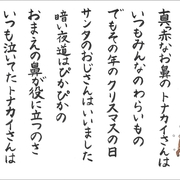 真赤なお鼻のトナカイさんは
いつもみんなのわらいもの
でもその年のクリスマスの日
サンタのおじさんはいいました
暗い夜道はぴかぴかの
おまえの鼻が役に立つのさ
いつも泣いてたトナカイさんは